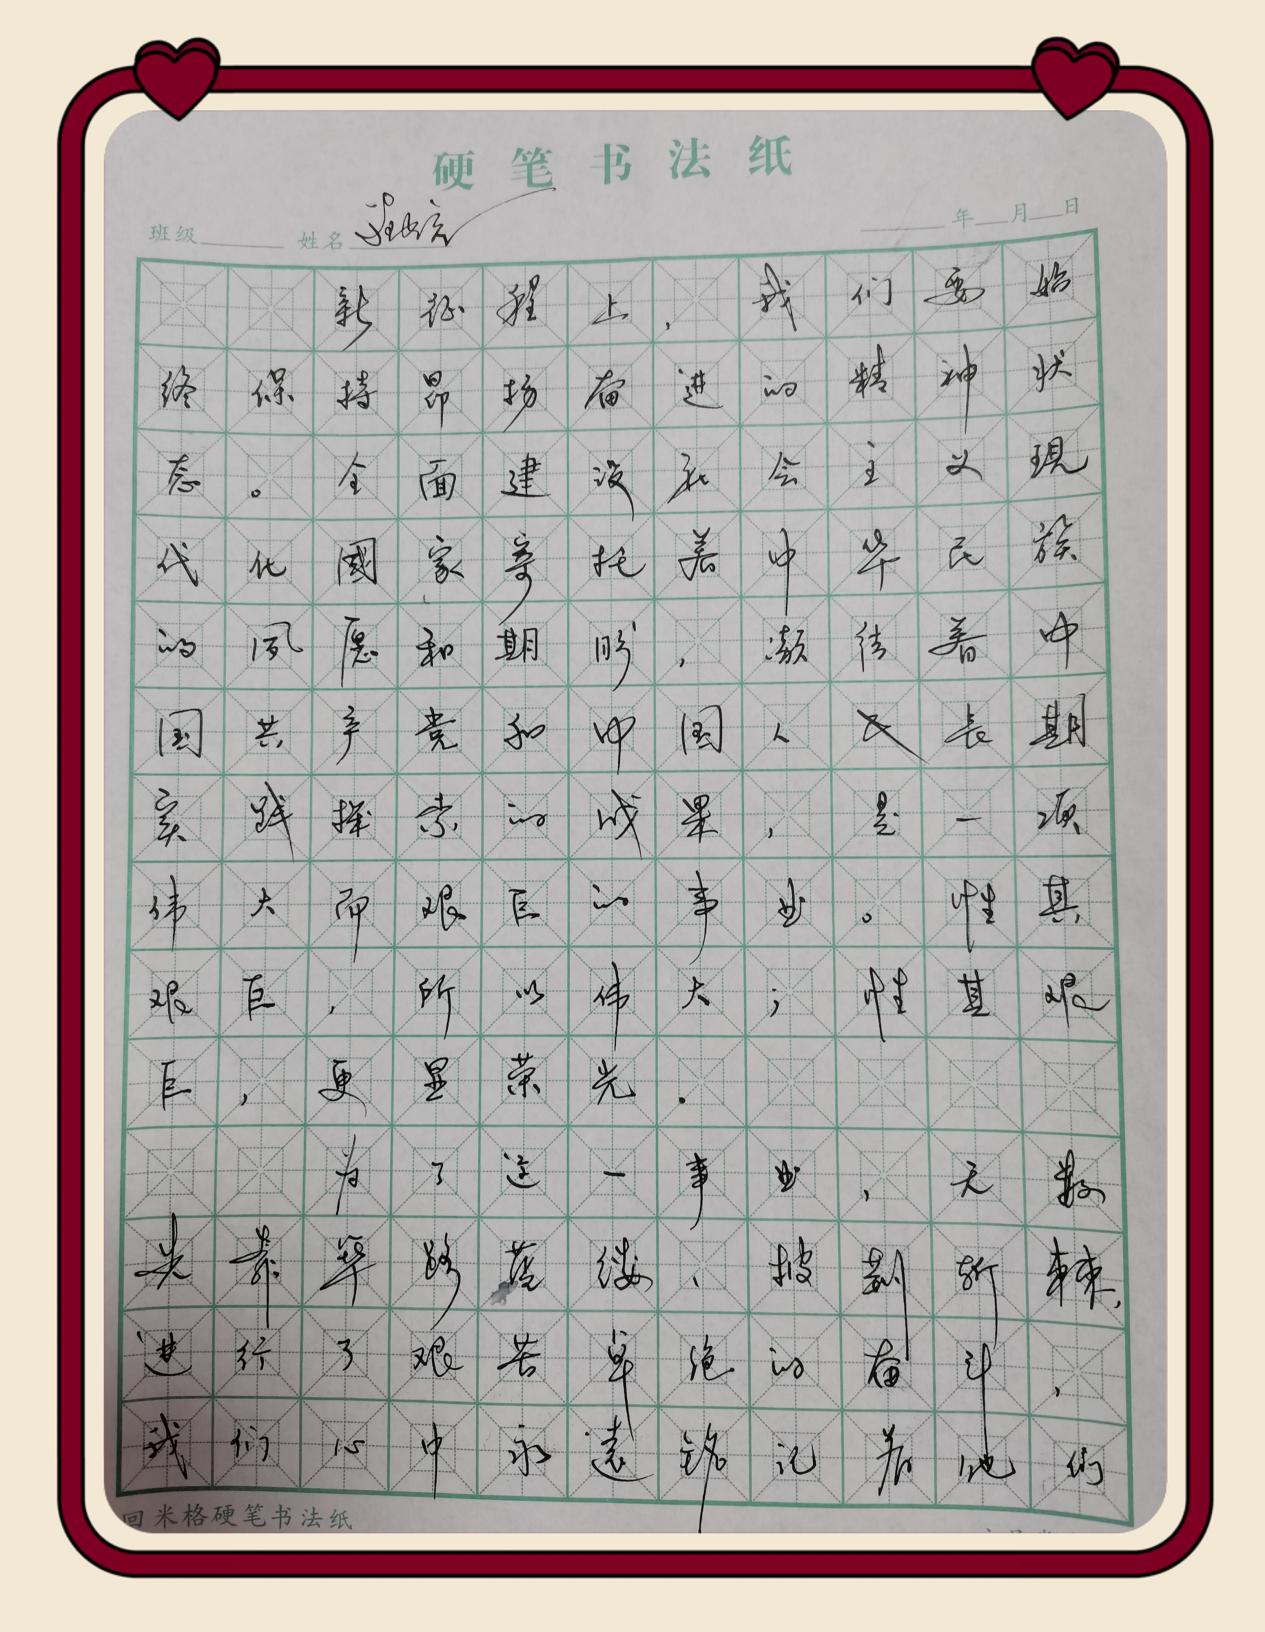 硬笔书法纸
班级 姓名 年 月 日
新征程上，我们要始
终保持昂扬奋进的精神状
态。全面建设社会主义现
代化國家寄托着中华民族
的夙愿和期盼，凝结着中
国共产党和中国人民长期
实践探索的成果，是一项
伟大而艰巨的事业。惟其
艰巨，所以伟大；惟其艰
巨，更显荣光。
为了这一事业，无数
先辈筚路蓝缕、披荆斩棘，
进行了艰苦卓绝的奋斗，
我们心中永远铭记着他们
回米格硬笔书法纸